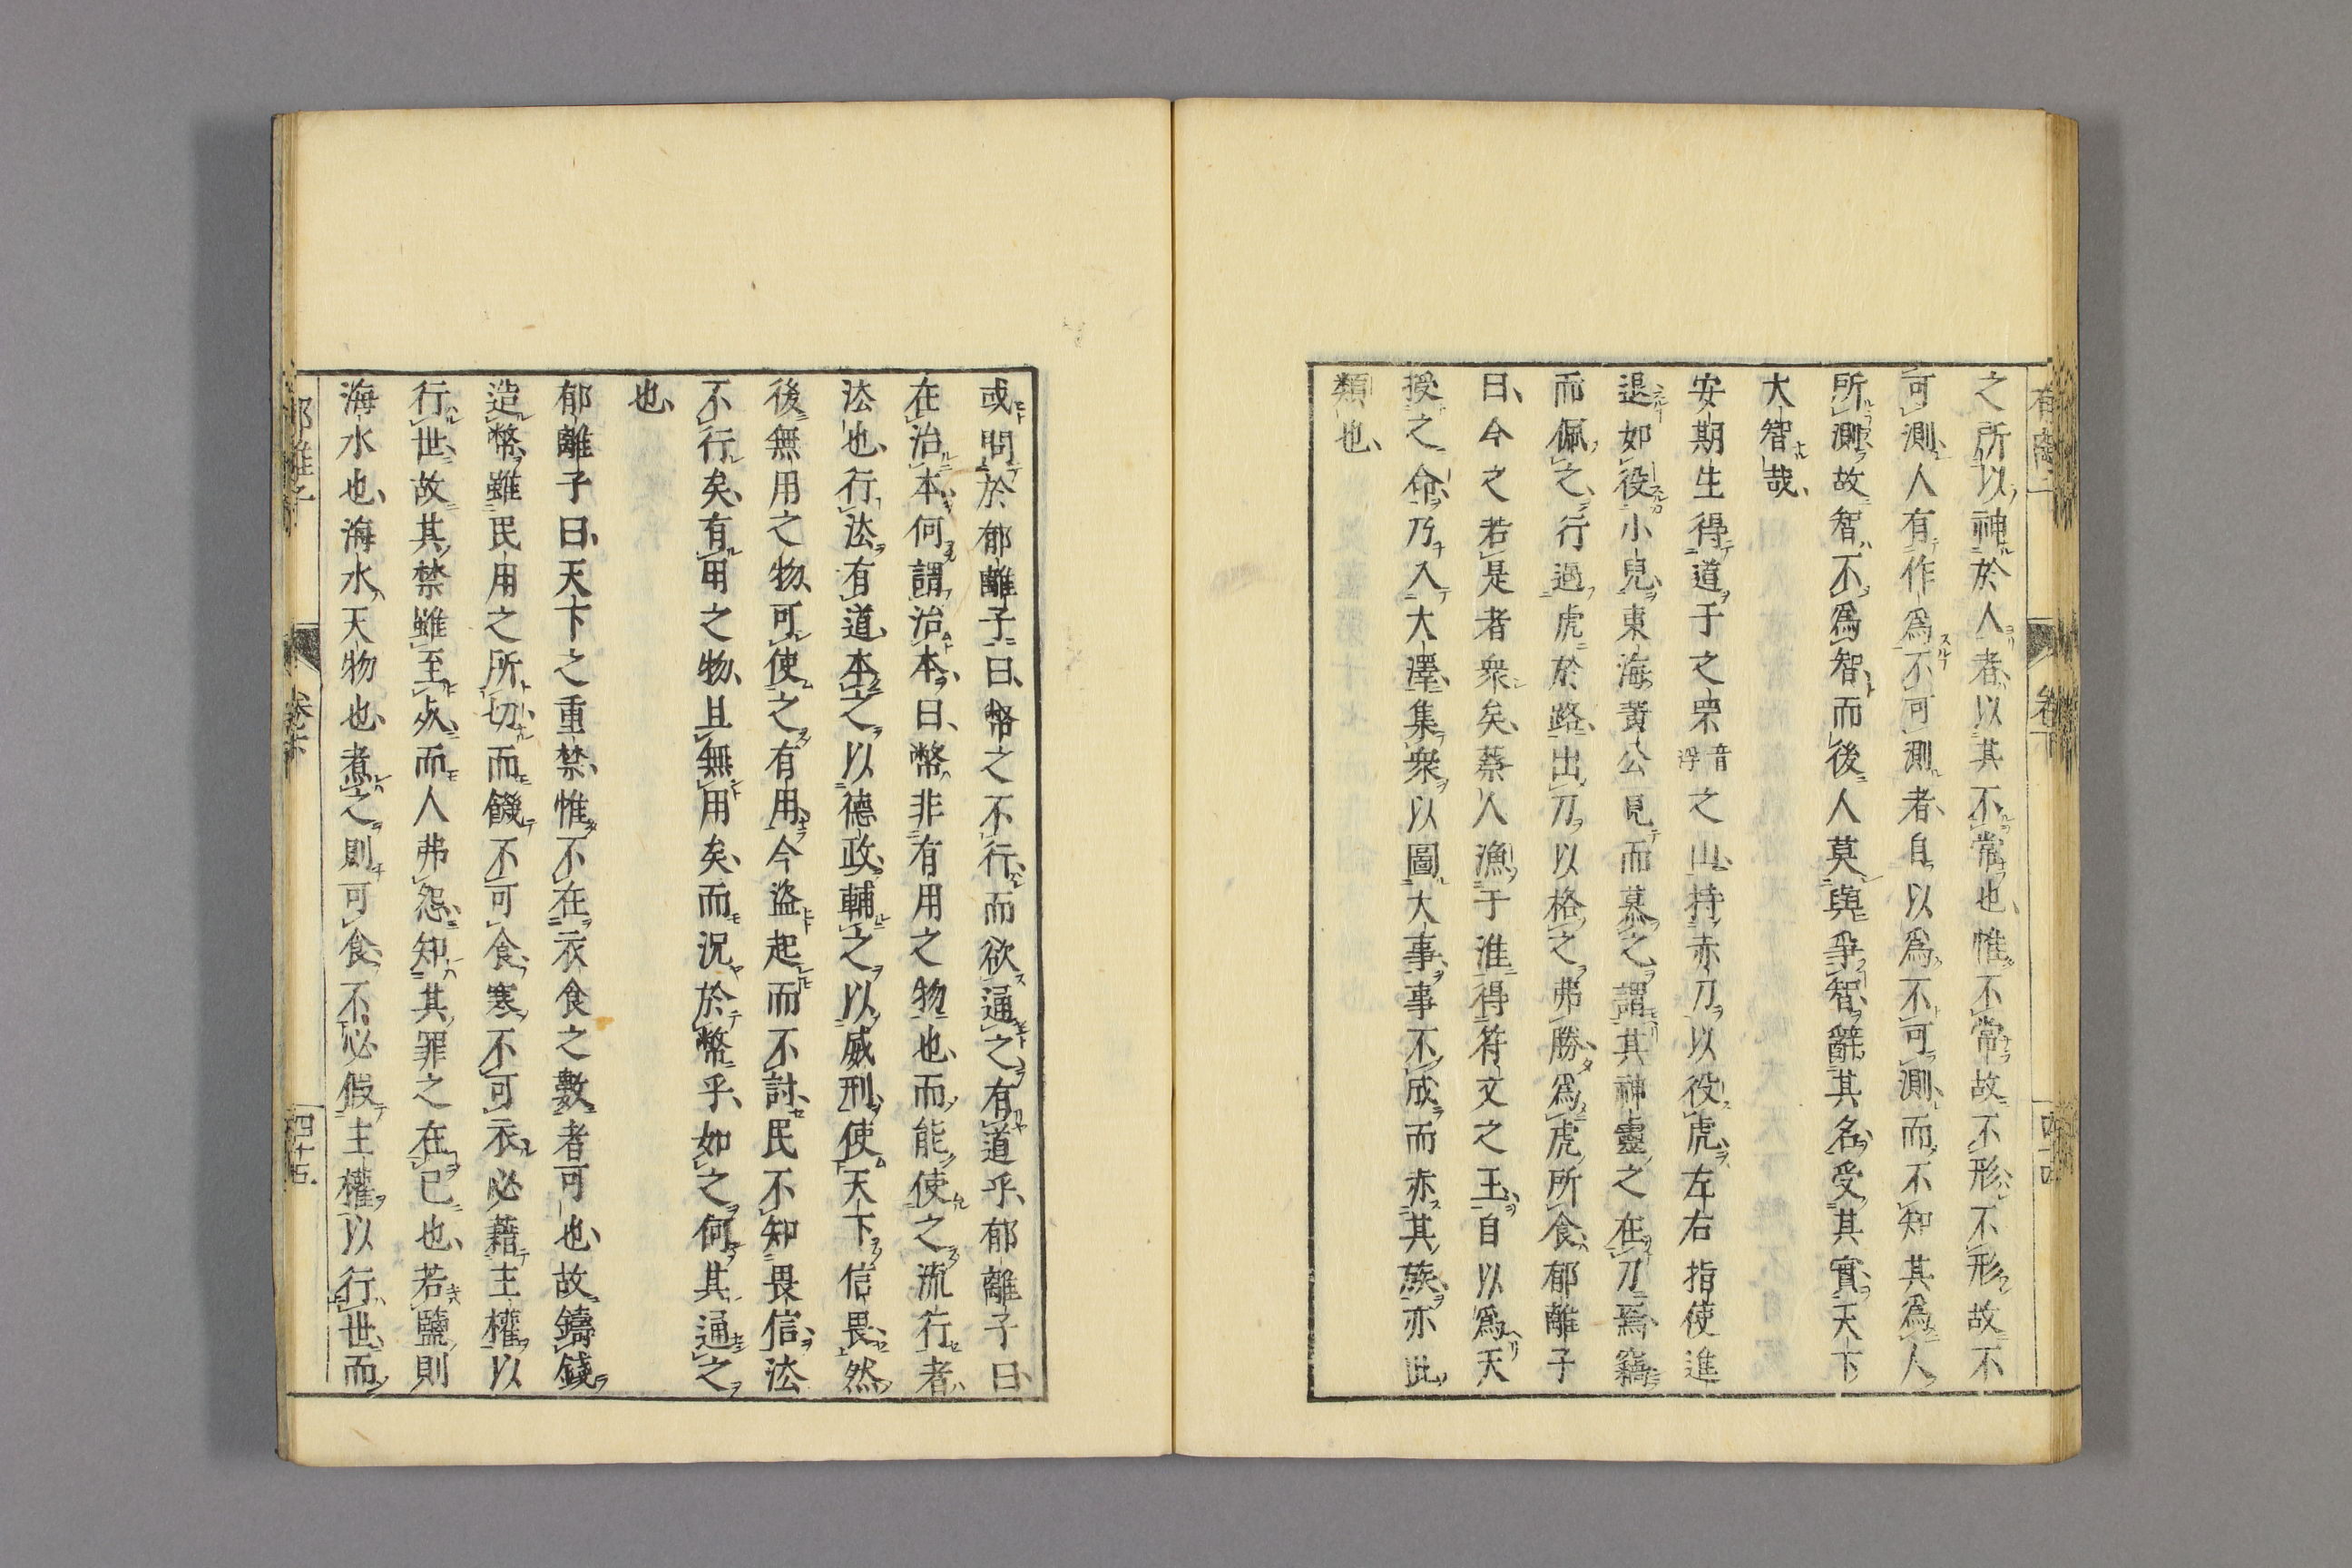 之所以神於人者以其不常也惟不常故不形不形故不
可測人有作爲不可測者自以爲不可測而不知其爲人
所測故智不爲智而後人莫與爭智辭其名受其實天下
大智哉
安期生得道于之罘音浮之山持赤刀以役虎左右指使進
退如役小兒東海黃公見而慕之謂其神靈之在刀焉竊
而佩之行遇虎於路出刀以格之弗勝爲虎所食郁離子
曰今之若是者衆矣蔡人漁于淮得符文之玉自以爲天
授之命乃入大澤集衆以圖大事事不成而赤其族亦此
類也
或問於郁離子曰幣之不行而欲通之有道乎郁離子曰
在治本何謂治本曰幣非有用之物也而能使之流行者
法也行法有道本之以德政輔之以威刑使天下信畏然
後無用之物可使之有用今盜起而不討民不知畏信法
不行矣有用之物且無用矣而況於幣乎如之何其通之
也
郁離子曰天下之重禁惟不在衣食之數者可也故鑄錢
造幣雖民用之所切而饑不可食寒不可衣必藉主權以
行世故其禁雖至死而人弗怨知其罪之在已也若鹽則
海水也海水天物也煮之則可食不必假主權以行世而
郁離子 卷下 四十五